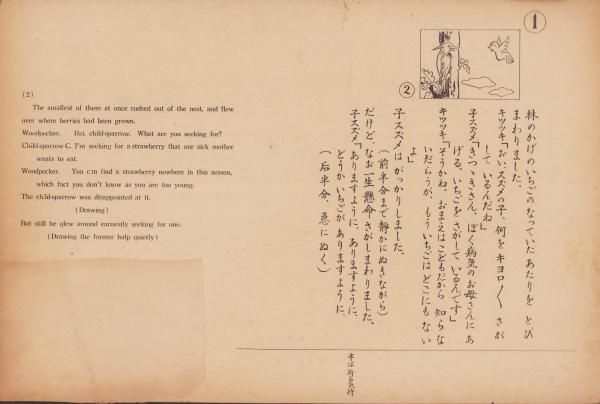 ①
②
林のかげのいちごのなっていたあたりを とび
まわりました。
キツツキ「おい、スズメの子、何を キヨロ〱 さが
しているんだね」
子スズメ「きつゝきさん、ぼく病気のお母さんに あ
げる、いちごを さがして いるんです」
キツツキ「そうかね。おまえはこどもだから 知らな
いだらうが、もういちごは どこにも ない
よ」
子スズメは がっかりしました。
(前半分まで 静かに ぬきながら)
だけど、なお一生懸命 さがしまわりました。
子スズメ「ありますように、ありますように、
どうか いちごが ありますように、
(后半分、急に ぬく)
(2)
The smallest of them at once rushed out of the nest, and flew
over where berries had been grown.
Woodpecker. Hei, child-sparrow. What are you seeking for?
Child-sparrow C. I'm seeking for a strawberry that our sick mother
wants to eat.
Woodpecker. You c'n find a strawberry nowhere in this season,
which fact you don't know as you are too young.
The child-sparrow was disappointed at it.
(Drawing)
But still he qlew around earnently seeking for one.
(Drawing the former halp quietly)